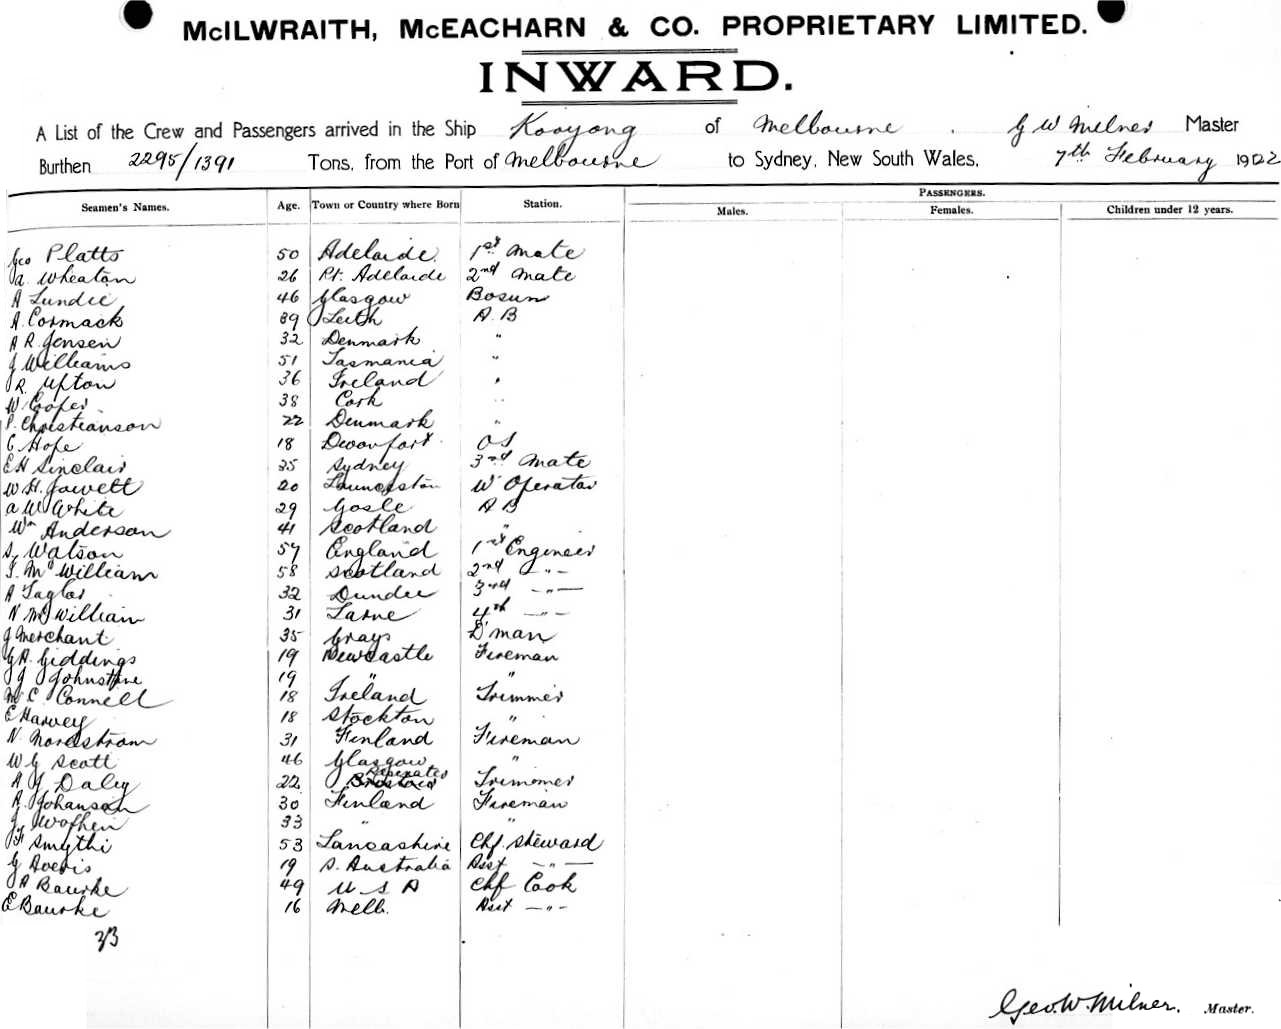 McILWRAITH, McEACHARN & CO. PROPRIETARY LIMITED.
INWARD.
A List of the Crew and Passengers arrived in the Ship Kooyong of Melbourne. G W Milner Master
Burthen 2295/1391 Tons, from the Port of Melbourne to Sydney, New South Wales, 7th February 1922
PASSENGERS.
Seamen's Names. Age. Town or Country where Born Station. Males. Females. Children under 12 years.
Geo Platts 50 Adelaide. 1st Mate
A. Wheaton 26 Pt. Adelaide 2nd Mate
A Lundie 46 Glasgow Bosun
A. Cormack 39 Leith A.B
A R Jensen 32 Denmark "
J Williams 51 Tasmania "
R. Upton 36 Ireland "
W Cooper 38 Cork "
P. Christianson 22 Denmark "
C Hope 18 Devonport OS
E H Sinclair 25 Sydney 3rd Mate
W H. Jowett 20 Launceston W Operator
A W White 29 Goole A B
Wm Anderson 41 Scotland "
S, Watson 57 England 1st Engineer
J. McWilliam 58 Scotland 2nd —"—
A Taylor 32 Dundee 3rd —"—
N McWilliam 31 Larne 4th —"—
J Merchant 35 Grays D'man
G A. Giddings 19 Newcastle Fireman
J Johnstone 19 " "
M C Connell 18 Ireland Trimmer
E Harvey 18 Stockton "
N. Nordstrom 31 Finland Fireman
W G Scott 46 Glasgow "
A J Daley 22 Trimmer
A. Johanson 30 Finland Fireman
J 33 " "
F Smythe 53 Lancashire Chf. Steward
G Averis 19 S. Australia Asst —"—
A Bourke 49 U S A Chf Cook
E Bourke 16 Melb. Asst —"—
33
Geo W Milner. Master.